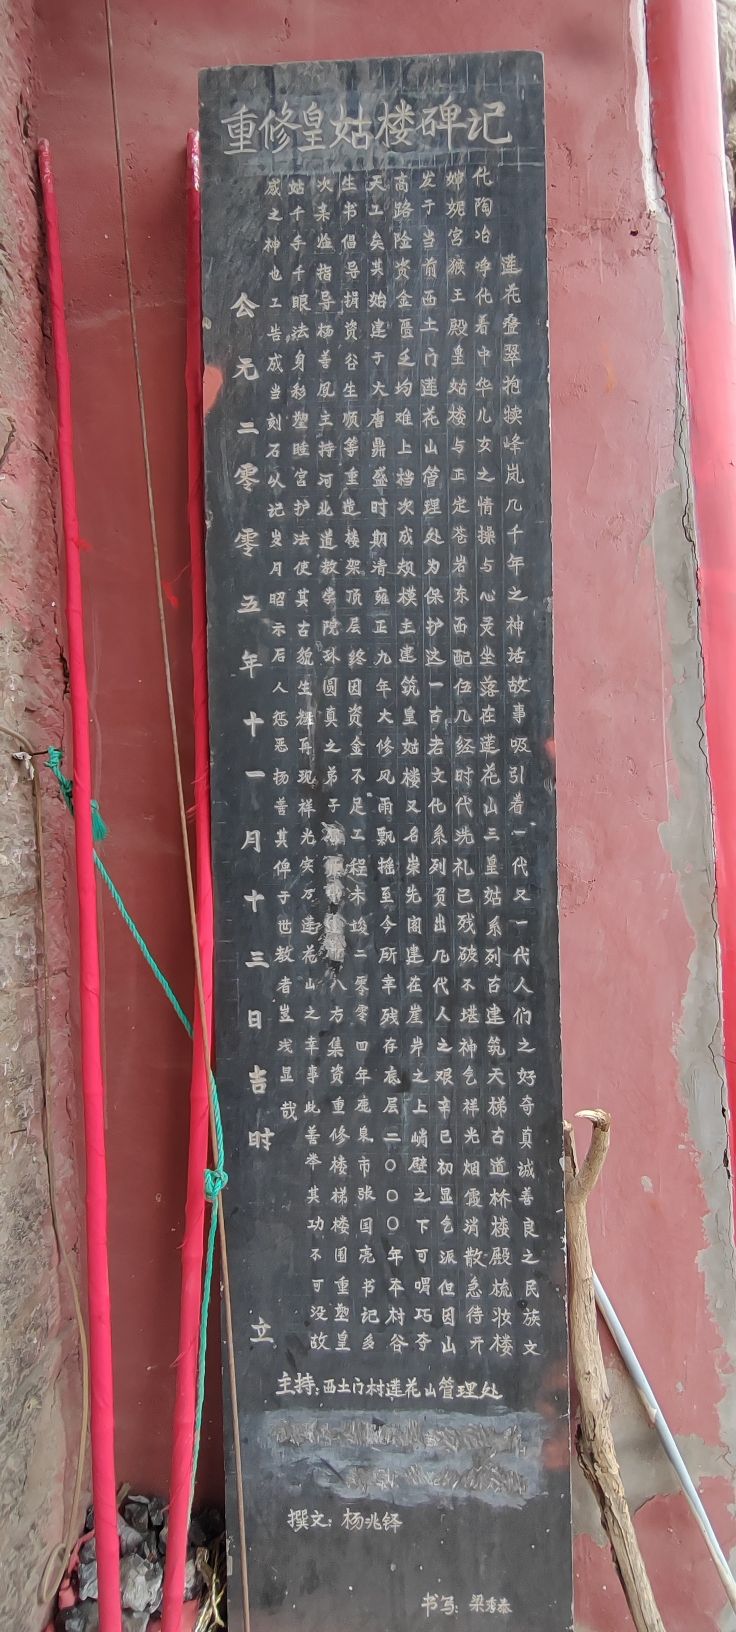 重修皇姑楼碑记
莲花叠翠抱犊峰岚几千年之神话故事吸引着一代又一代人们之好奇真诚善良之民族文
化陶冶净化着中华儿女之情操与心灵坐落在莲花山三皇姑系列古建筑天梯古道桥楼殿梳妆楼
嫦娥宫猴王殿皇姑楼与正定苍岩东西配伍几经时代洗礼已残破不堪神气祥光烟霞消散急待开
发于当前西土门莲花山管理处为保护这一古老文化系列负出几代人之艰辛已初显气派但因山
高路险资金匮乏均难上档次成规模主建筑皇姑楼又名崇先阁建在崖岸之上峭壁之下可喟巧夺
天工矣其始建于大唐鼎盛时期清雍正九年大修风雨飘摇至今所幸残存底层二〇〇〇年本村谷
生书倡导捐资谷生顺等重造楼架顶层终因资金不足工程未竣二零零四年鹿泉市张国亮书记多
次来临指导杨善凤主持河北道教学院珎圆真之弟子八方集资重修楼梯楼围重塑皇
姑千手千眼法身彩塑睡宫护法使其古貌生辉再现祥光实乃莲花山之幸事此善举其功不可没故
感之神也工告成当刻石以记岁月昭示后人惩恶扬善其俾于世教者岂浅显哉
公元二零零五年十一月十三日吉时立
主持：西土门村莲花山管理处
撰文：杨兆铎
书写：梁秀泰